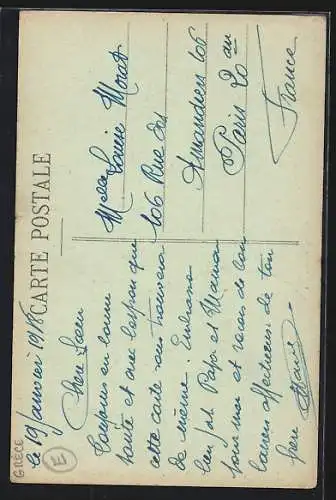 CARTE POSTALE
le 19 Janvier 1916
Chère Sœur
Toujours en bonne
santé et avec l'espoir que
cette carte vous trouvera
de même. Embrasse
bien ptit Papa et Maman
pour moi et reçois de bons
baisers affectueux de ton
frère
Melle Louise Morat
106 Rue des
Amandiers 106
Paris 20
France
GRÈCE
E